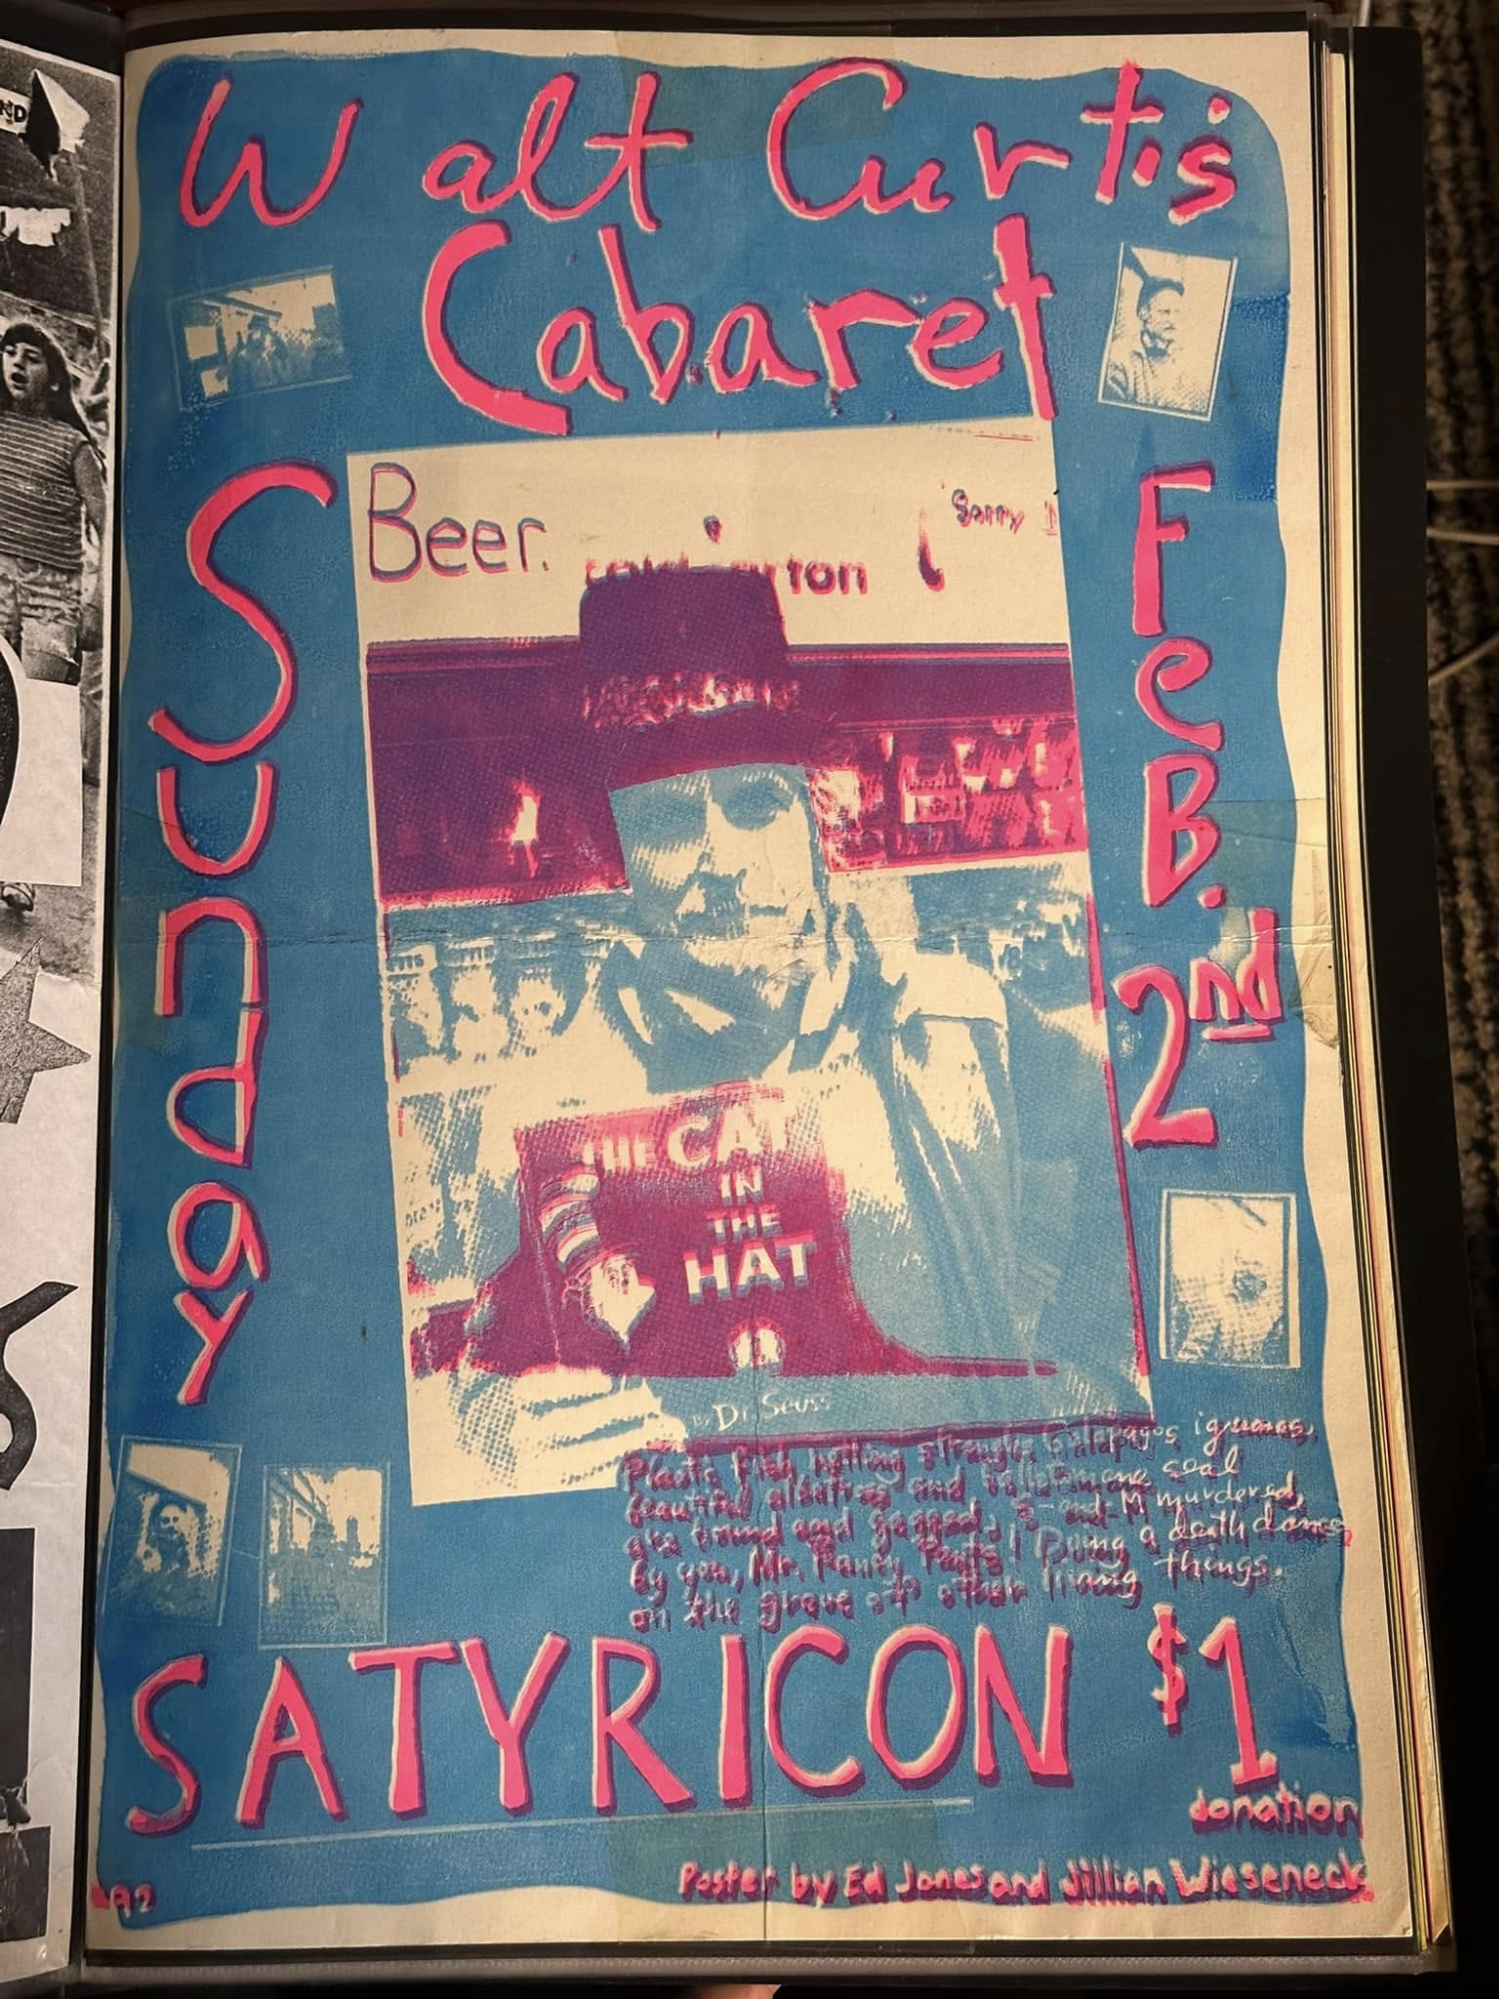 Walt Curtis
Cabaret
Sunday
FeB.
2nd
Beer.
Sorry
ton
THE CAT
IN
THE
HAT
By Dr. Seuss
Plastic fish netting strangles Galapagos iguanas,
beautiful albatross and seal
are bound and gagged, S-and-M murdered,
by you, Mr. Fancy Pants! Doing a death dance
on the grave of other living things.
SATYRICON $1
donation
Poster by Ed Jones and Jillian Wieseneck
92